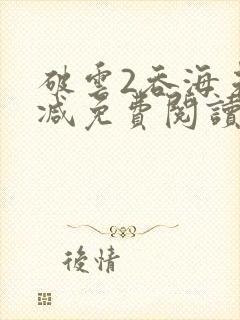 破雲2吞海未
減免費閱讀
後情